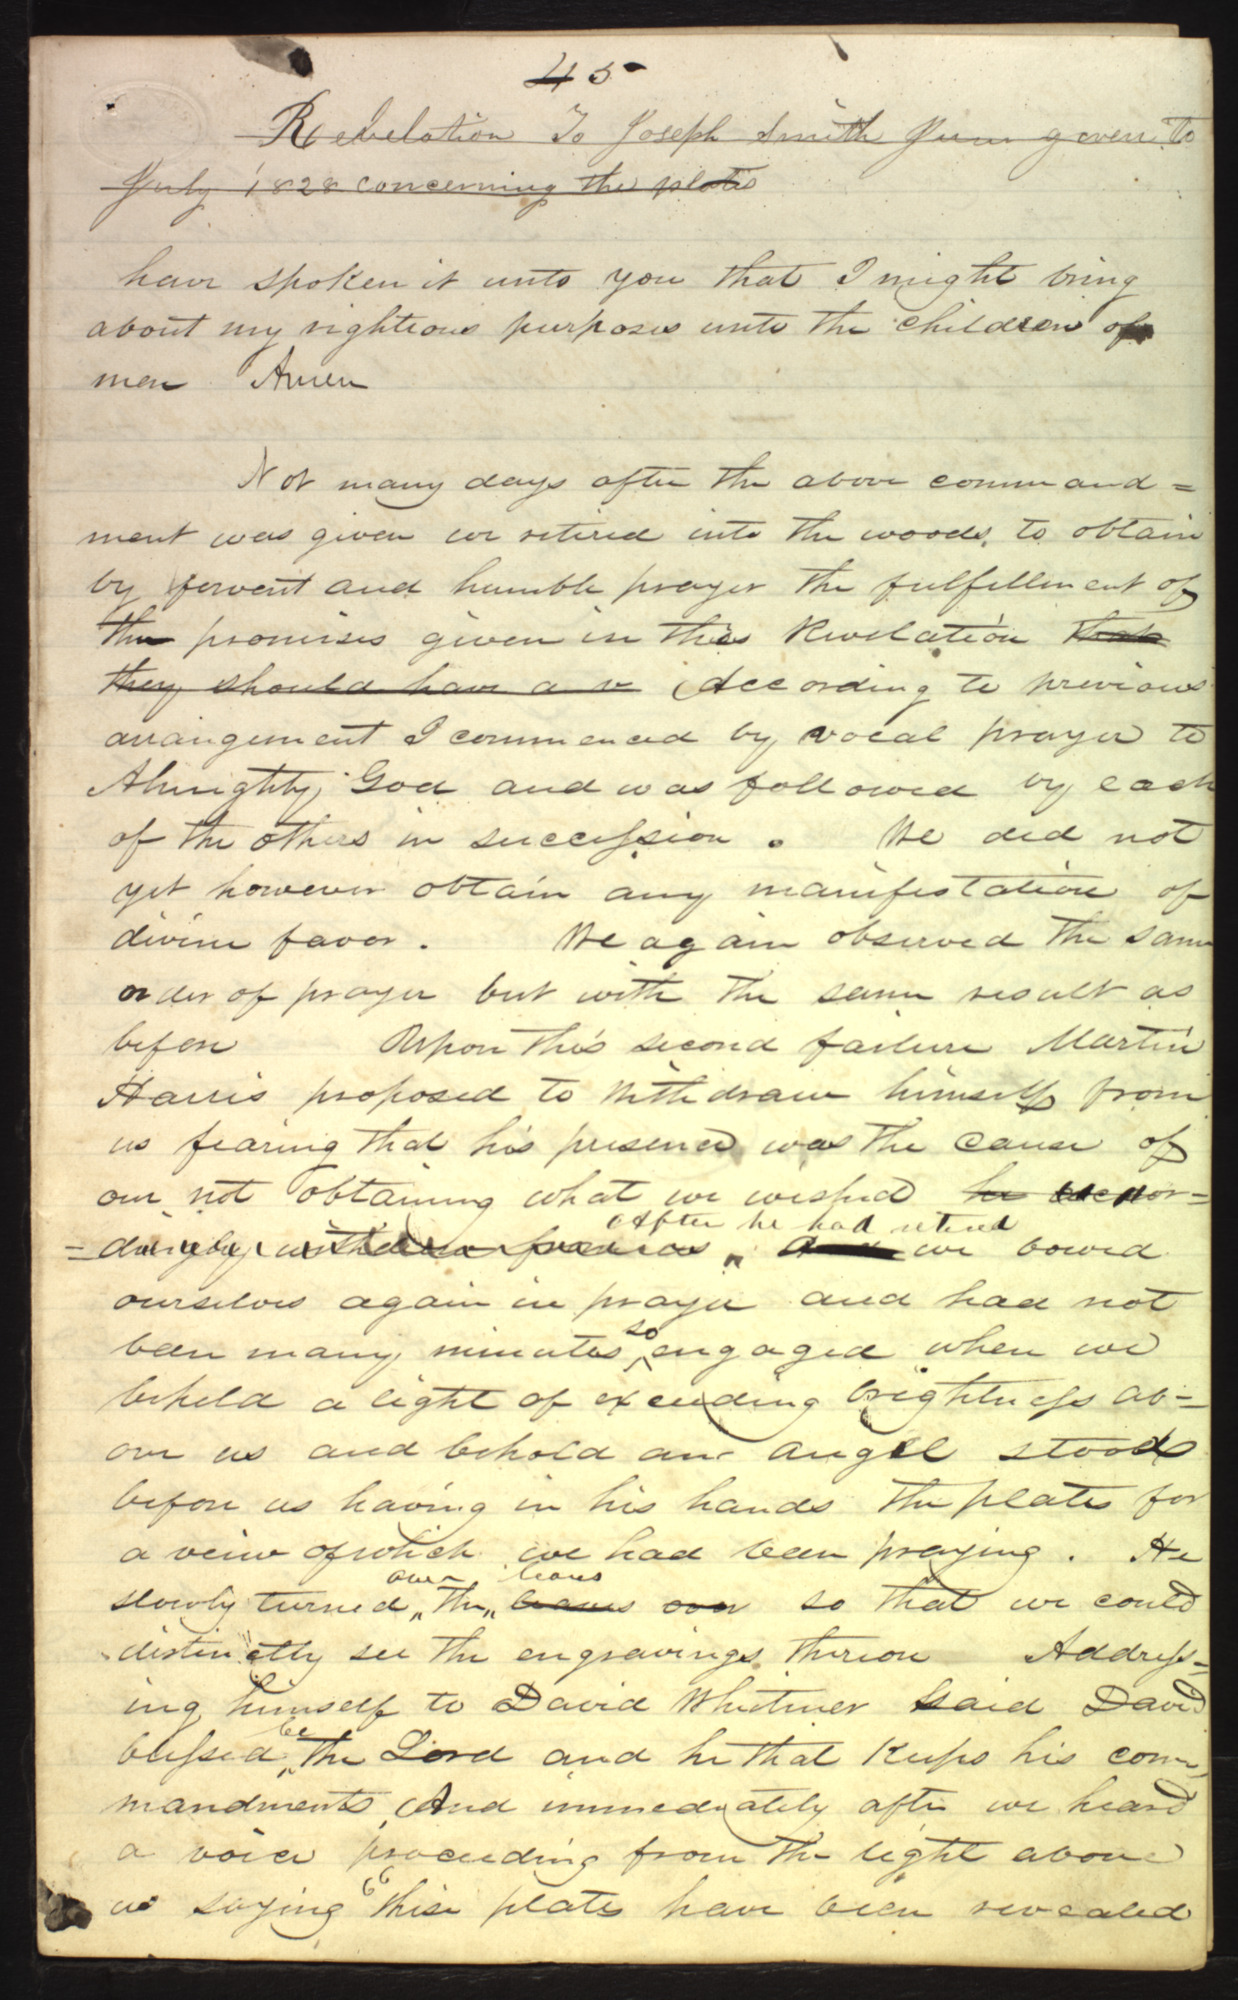 45
Revelation To Joseph Smith Jun given to
July 1828 concerning the plates
have spoken it unto you that I might bring
about my righteous purposes unto the children of
men Amen
Not many days after the above command=
ment was given we retired into the woods, to obtain
by fervent and humble prayer the fulfillment of
the promises given in this Revelation that
they should have a v According to previous
arangement I commenced by vocal prayer to
Almighty God and was followed by each
of the others in succession. We did not
yet however obtain any manifestation of
divine favor. We again observed the same
order of prayer but with the same result as
before Upon this second failure Martin
Harris proposed to withdraw himself from
us fearing that his presence was the cause of
our not obtaining what we wished he accor=
After he had retired
=dingly withdrew from us, And we bowed
ourselves again in prayer and had not
so
been many minutes engaged when we
beheld a light of exceeding brightness ab=
ove us and behold an angel stood
before us having in his hands the plates for
a veiw of which we had been praying. He
over leaves
slowly turned the leaves over so that we could
distinctly see the engravings thereon Address=
ing himself to David Whitmer said David
be
blessed the Lord and he that keeps his com
mandments, And immediately after we heard
a voice proceeding from the light above
us saying "these plates have been revealed